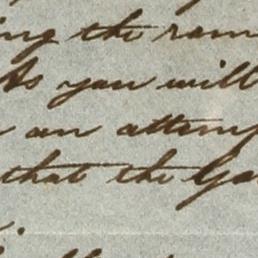 ing the ram
As you will
an attemp
that the Ga